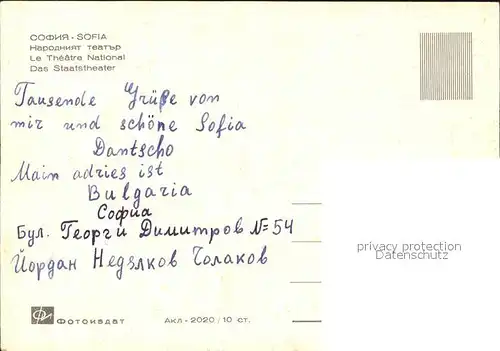 СОФИЯ - SOFIA
Народният театър
Le Théâtre National
Das Staatstheater
Tausende Grüße von
mir und schöne Sofia
Dantscho
Main adries ist
Bulgaria
София
Бул. Георги Димитров № 54
Йордан Недялков Чолаков
privacy protection
Datenschutz
Фотоиздат
Акл - 2020 / 10 ст.